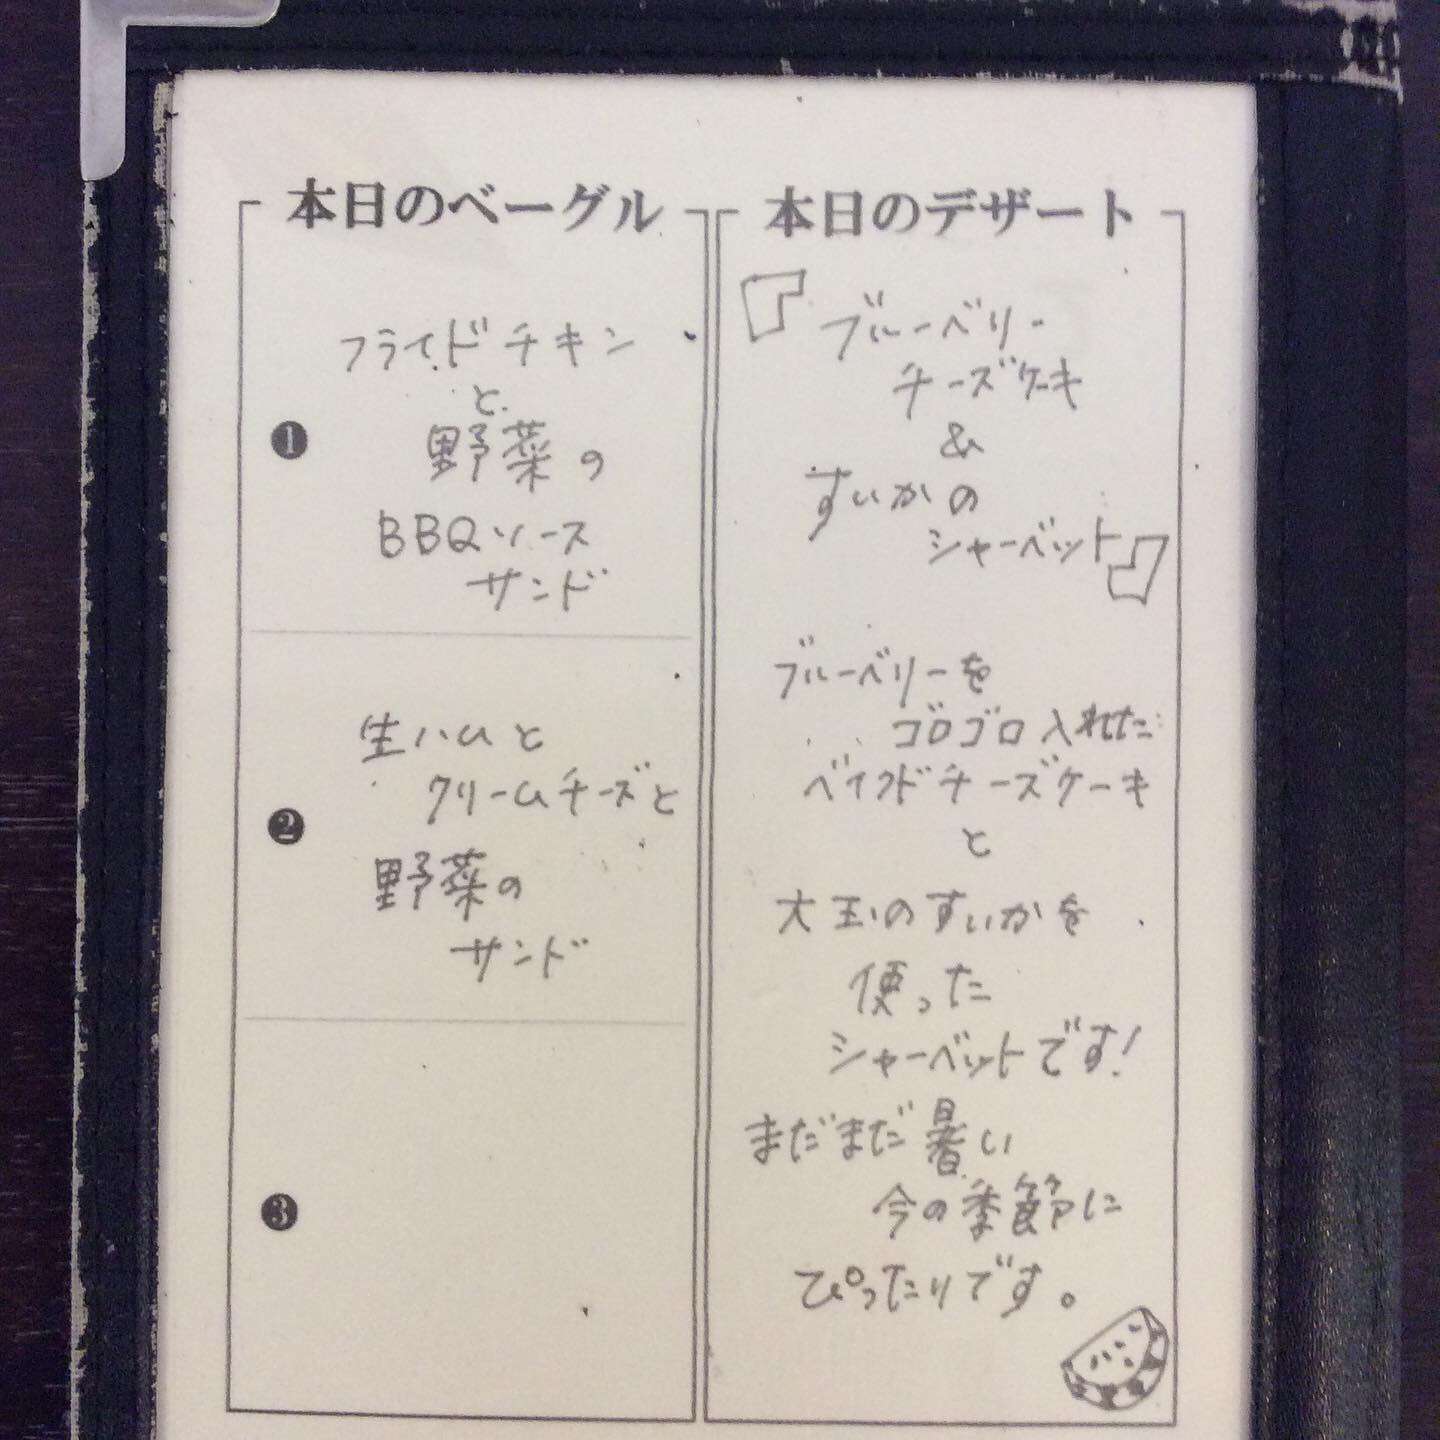 本日のベーグル
❶
フライドチキン
と
野菜の
BBQソース
サンド
❷
生ハムと
クリームチーズと
野菜の
サンド
❸
本日のデザート
『ブルーベリー
チーズケーキ
&
すいかの
シャーベット』
ブルーベリーを
ゴロゴロ入れた
ベイクドチーズケーキ
と
大玉のすいかを
使った
シャーベットです!
まだまだ暑い
今の季節に
ぴったりです。